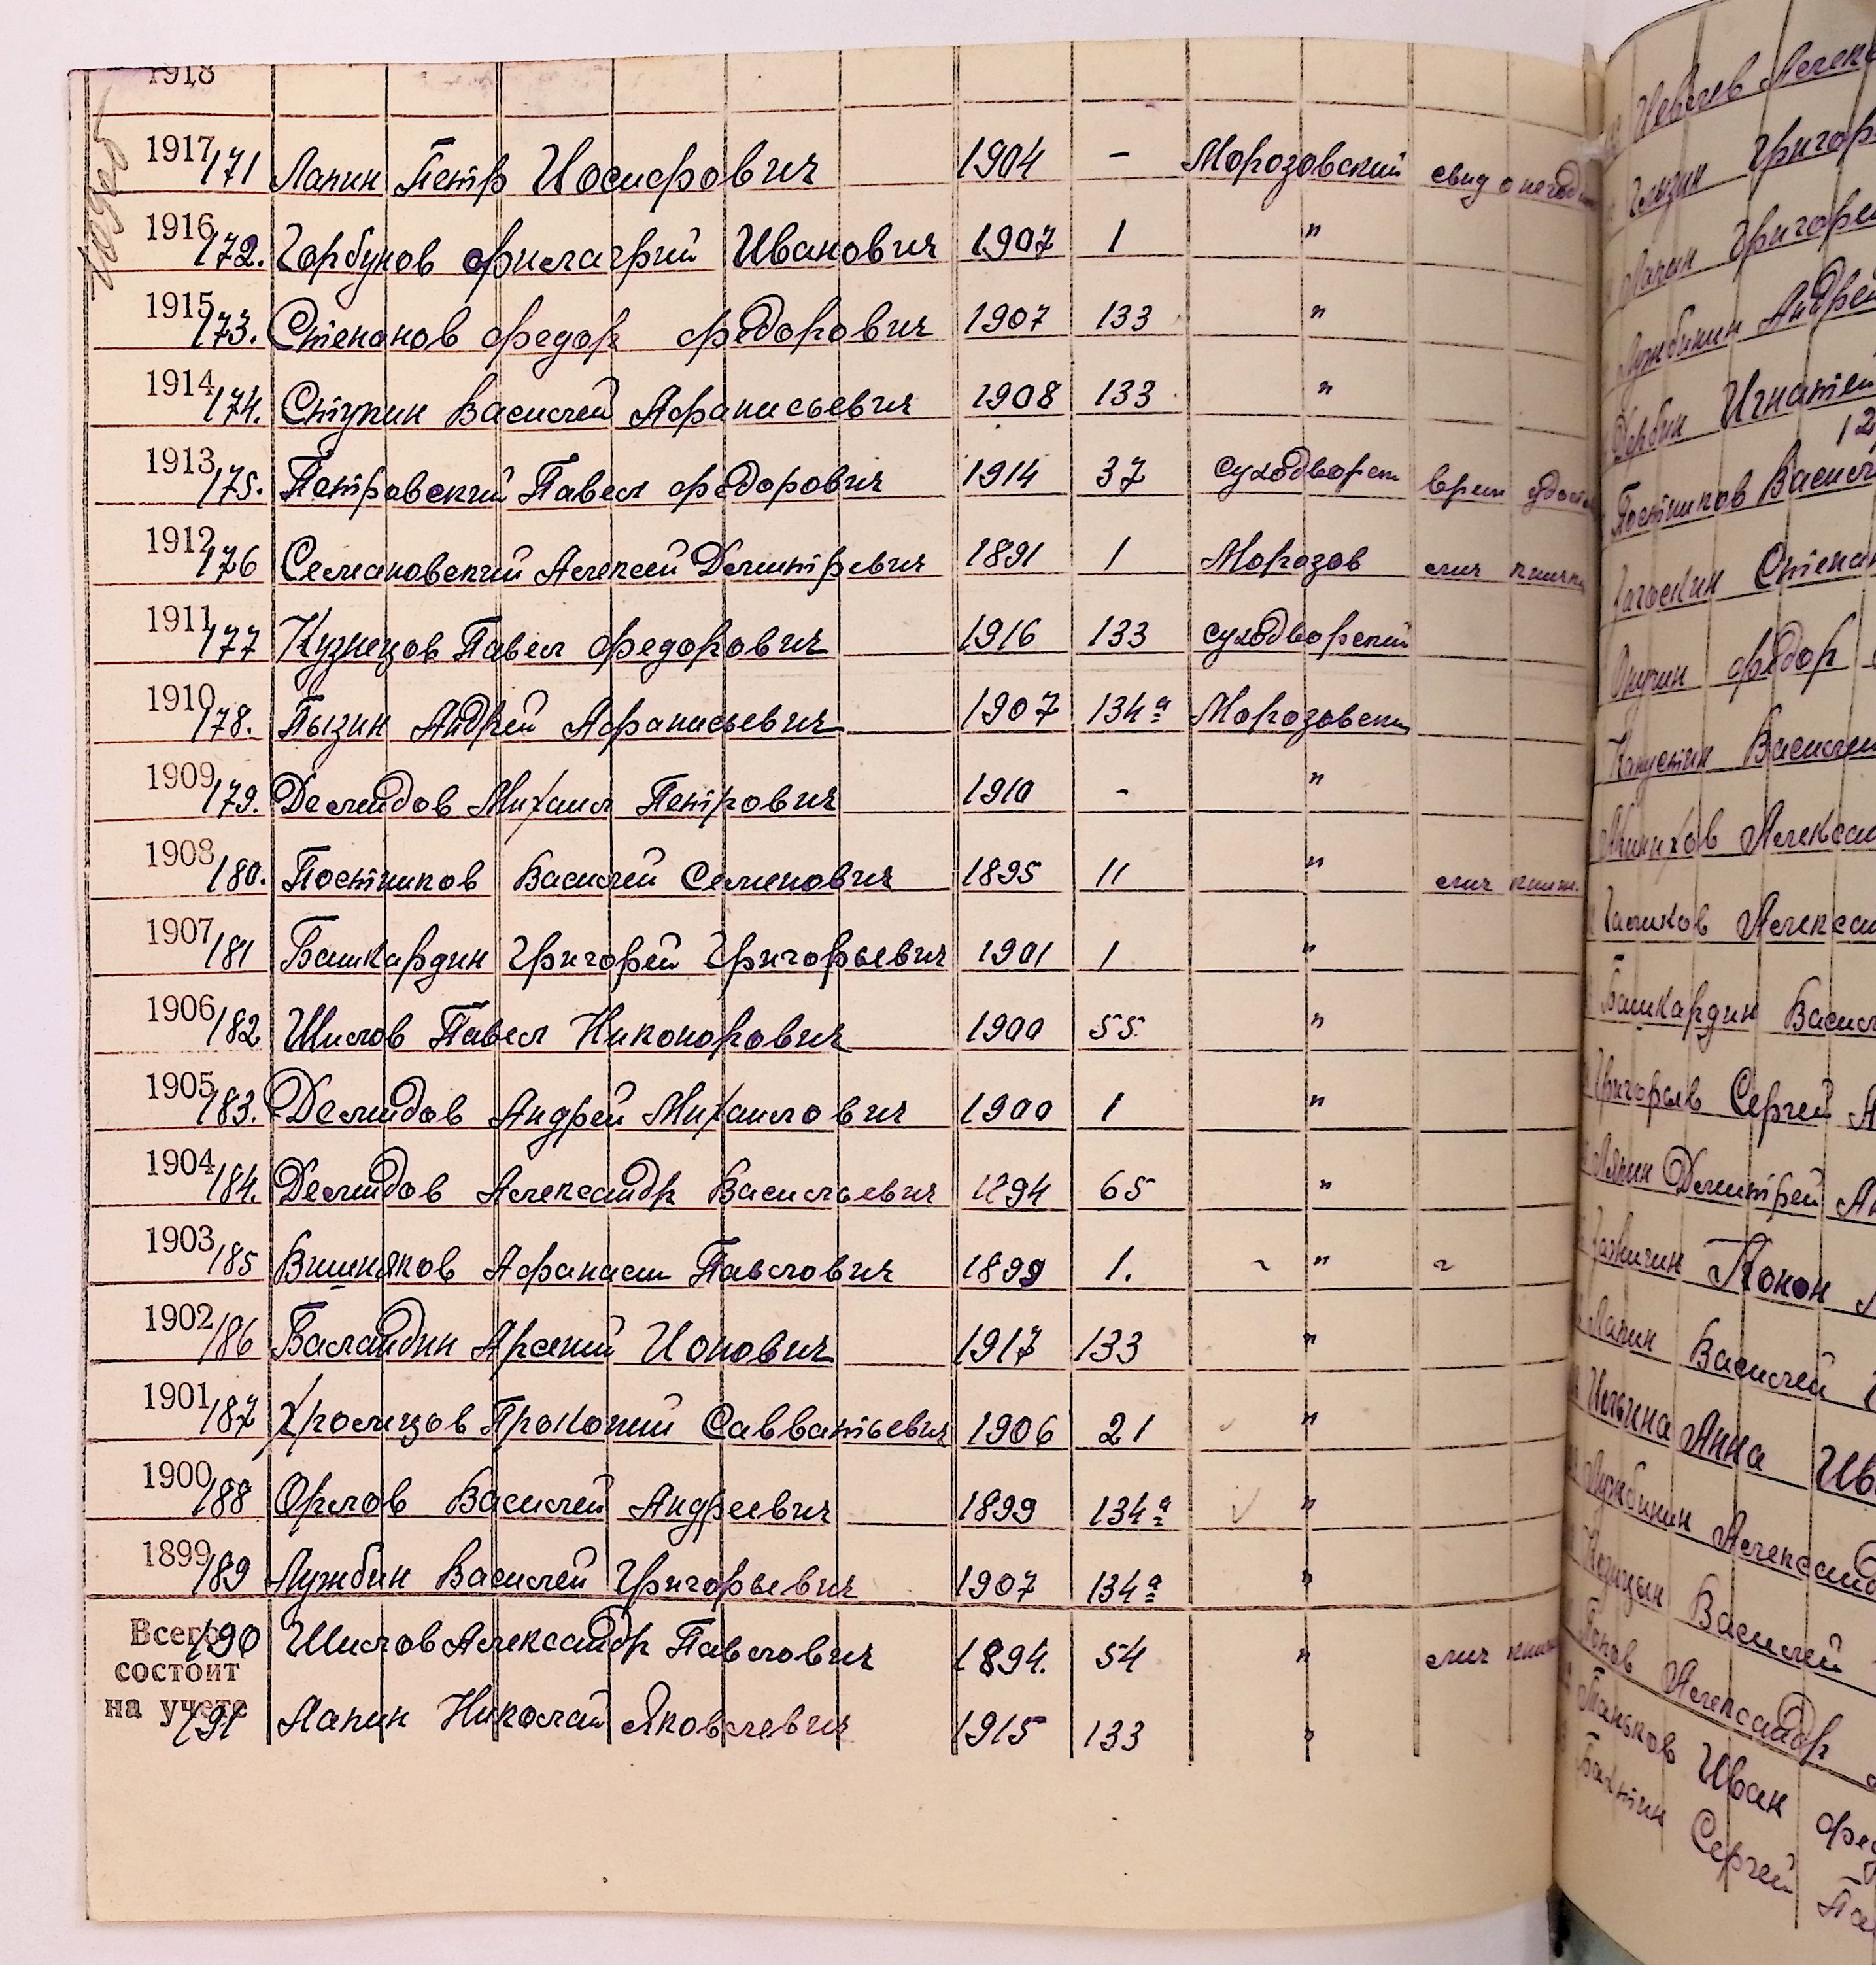 1918
1917 171 Лапин Петр Иосифович 1904 - Морозовский свид о негод
1916 172. Горбунов Филагрий Иванович 1907 1 "
1915 173. Степанов Федор Федорович 1907 133 "
1914 174. Ступин Василей Афанисьевич 1908 133 "
1913 175. Петровский Павел Федорович 1914 37 суходворск врем удост
1912 176 Семановский Алексей Дмитревич 1891 1 Морозов лич книжка
1911 177 Кузнецов Павел Федорович 1916 133 суходворский
1910 178. Пызин Андрей Афанисьевич 1907 134а Морозовски
1909 179. Демидов Михаил Петрович 1910 - "
1908 180. Постников Василей Семенович 1895 11 " лич книж.
1907 181 Башкардин Григорей Григорьевич 1901 1 "
1906 182 Шилов Павел Никонорович 1900 55 "
1905 183. Демидов Андрей Михаилович 1900 1 "
1904 184. Демидов Александр Васильевич 1894 65 "
1903 185 Вишняков Афанасий Павлович 1899 1. ~ " ~
1902 186 Баландин Арсений Ионович 1917 133 "
1901 187 Хромцов Прокопий Савватьевич 1906 21 "
1900 188 Орлов Василей Андреевич 1899 134а "
1899 189 Лужбин Василей Григорьевич 1907 134а "
Всего 190 Шилов Александр Павлович 1894. 54 " лич книж
состоит
на учете 191 Лапин Николай Яковлевич 1915 133 "
Григор
Лапин Григорей
Лужбинин Андрей
Дербин Игнатей
12
Постников Василей
Степан
Федор
Капустин Василей
Алексан
Алексан
Башкардин Васил
Григорьев Сергей А
Дмитрей Ан
Лапин Василей
Ильина Анна Ив
Лужбинин Александ
Василей
Попов Александр
Паньков Иван Фед
Бахтин Сергей Па